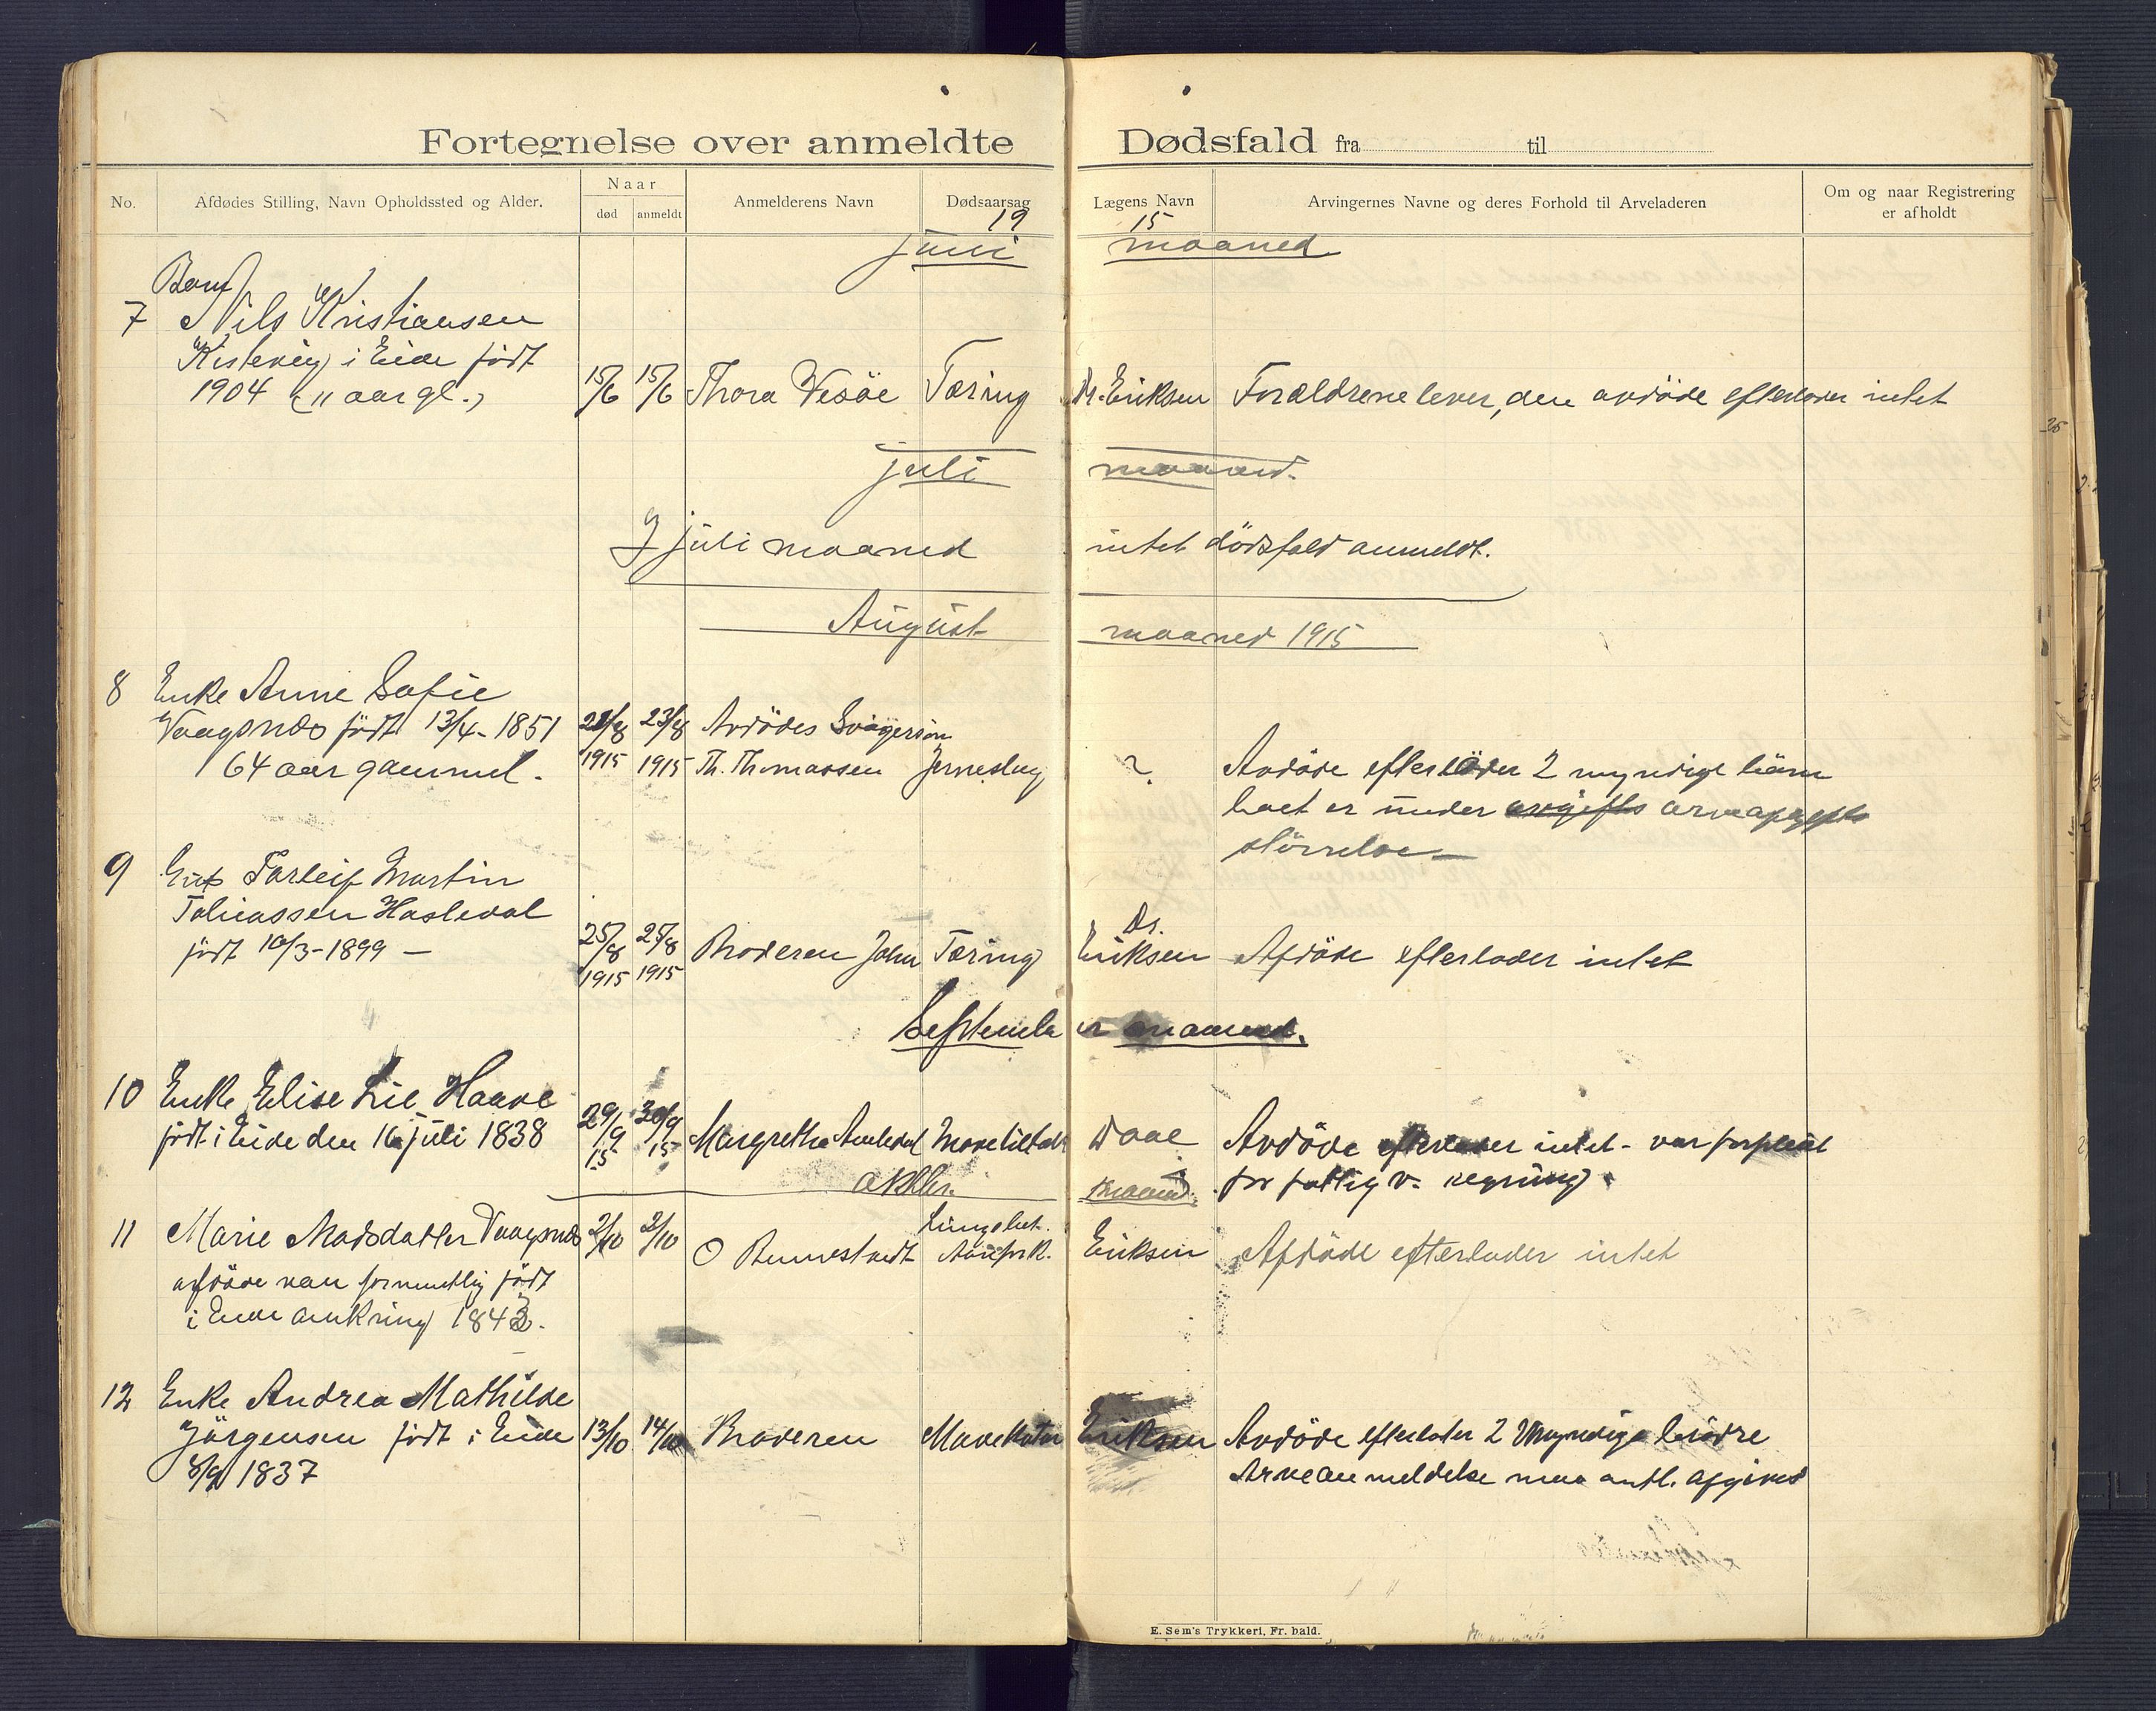 Fortegnelse over anmeldte Dødsfald fra til
No.
Afdødes Stilling, Navn Opholdssted og Alder.
Naar
død
anmeldt
Anmelderens Navn
Dødsaarsag
Lægens Navn
Arvingernes Navne og deres Forhold til Arveladeren
Om og naar Registrering
er afholdt
19 15
juni maaned
Barn
7 Nils Kristiansen
i Eide født
1904 (11 aar gl.) 15/6 15/6 Thora Vesöe Tæring Dr. Eriksen Forældrene lever, den avdöde efterlader intet
juli maaned.
I juli maaned intet dödsfald anmeldt.
August maaned 1915
8 Enke Anne Sofie
Vaagsnes født 13/4-1851 21/8 23/8 Avdödes Svigersön
64 aar gammel. 1915 1915 Th. Thomassen Jerneslag ? Avdöde efterlader 2 myndige börn
boet er under arveafgifts
störrelse
9 Gut Tarleif Martin
Tobiassen Hasleval
født 10/3-1899 — 25/8 25/8 Broderen John Tæring Dr. Eriksen Afdöde efterlader intet
1915 1915
September maaned.
10 Enke Elise Lie Haave 29/9 30/9
født i Eide den 16 juli 1838 15 15 Margrethe Mavetilfælde Daae Avdöde efterlader intet - var forpleiet
for fattigv. regning.
oktbr. maaned.
11 Marie Madsdatter Vaagsnes 2/10 2/10 O Runestvedt Lungebet. Eriksen Afdöde efterlader intet
afdöde var formentlig født
i Eide omkring 1843.
12 Enke Andrea Mathilde
Jörgensen født i Eide 13/10 14/10 Broderen Mavekatar Eriksen Avdöde efterlater 2 Myndige brödre
8/9 1837 Arveanmeldelse maa antl. afgives
E. Sem's Trykkeri, Fr. hald.